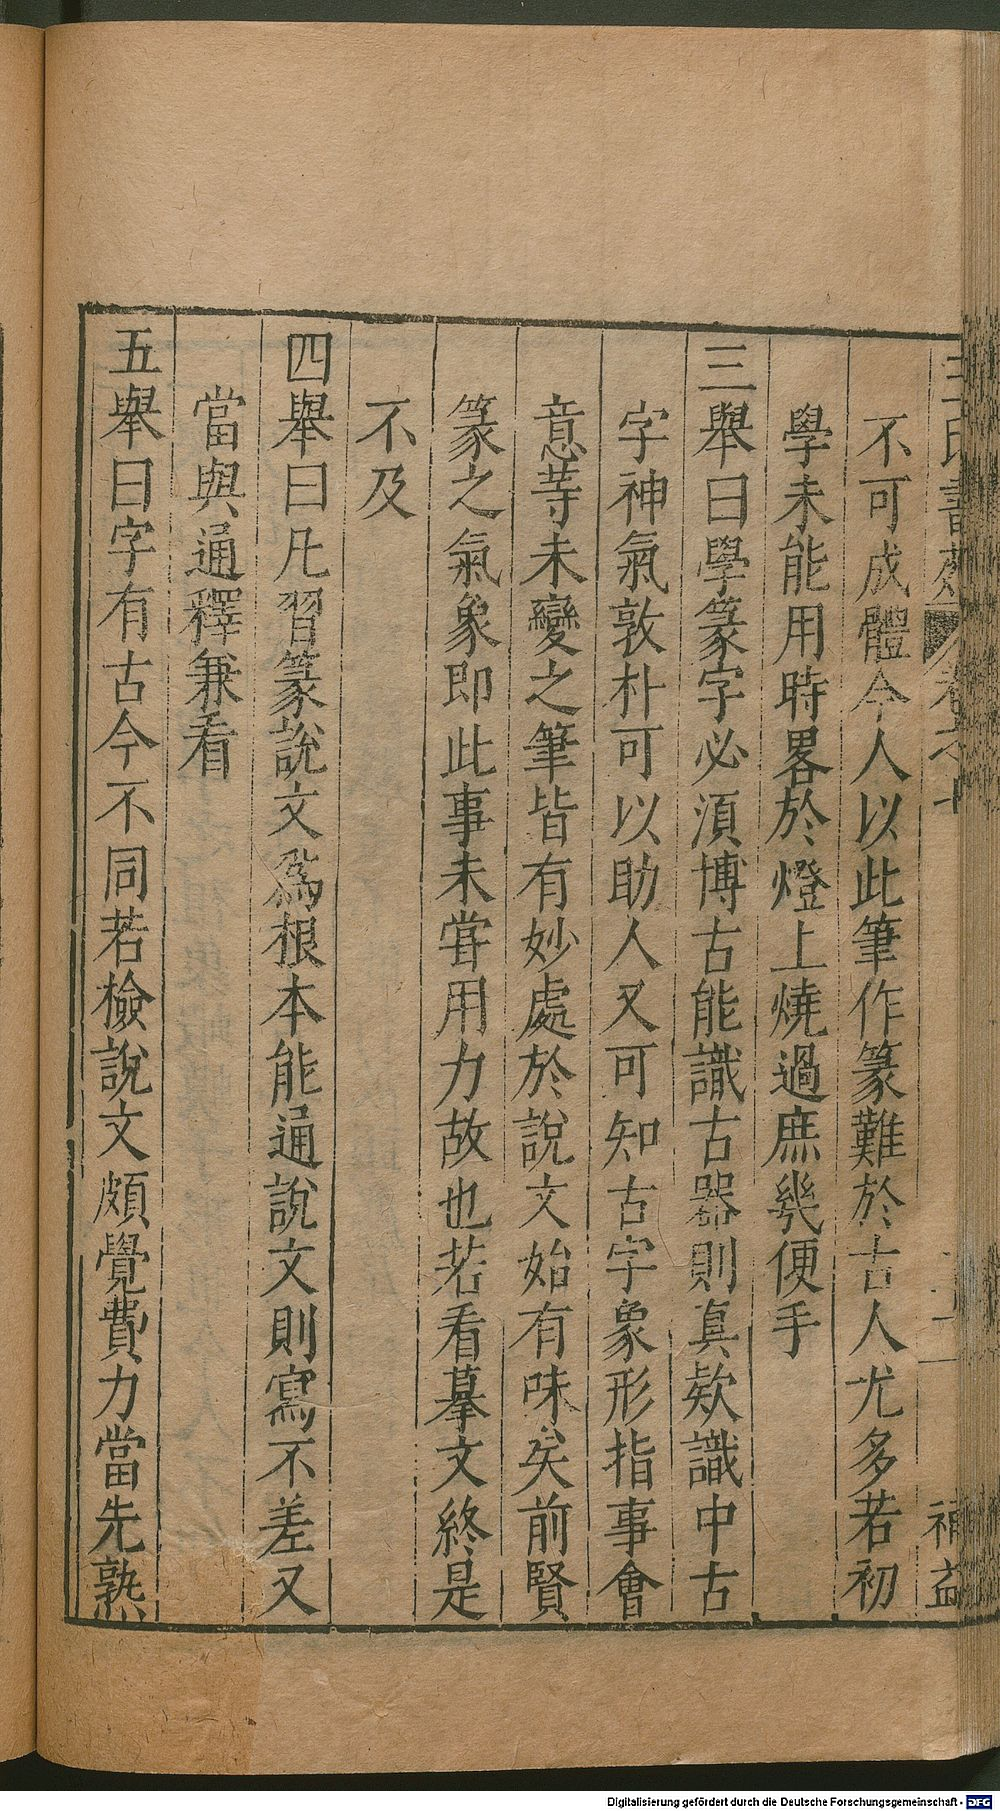 王氏書苑 卷之十 補益
不可成體今人以此筆作篆難於古人尤多若初
學未能用時畧於燈上燒過庶幾便手
三舉曰學篆字必須博古能識古器則真欵識中古
字神氣敦朴可以助人又可知古字象形指事會
意䓁未變之筆皆有妙處於說文始有味矣前賢
篆之氣象即此事未甞用力故也若看摹文終是
不及
四舉曰凡習篆說文爲根本能通說文則寫不差又
當與通釋兼看
五舉曰字有古今不同若檢說文頗覺費力當先熟
Digitalisierung gefördert durch die Deutsche Forschungsgemeinschaft - DFG